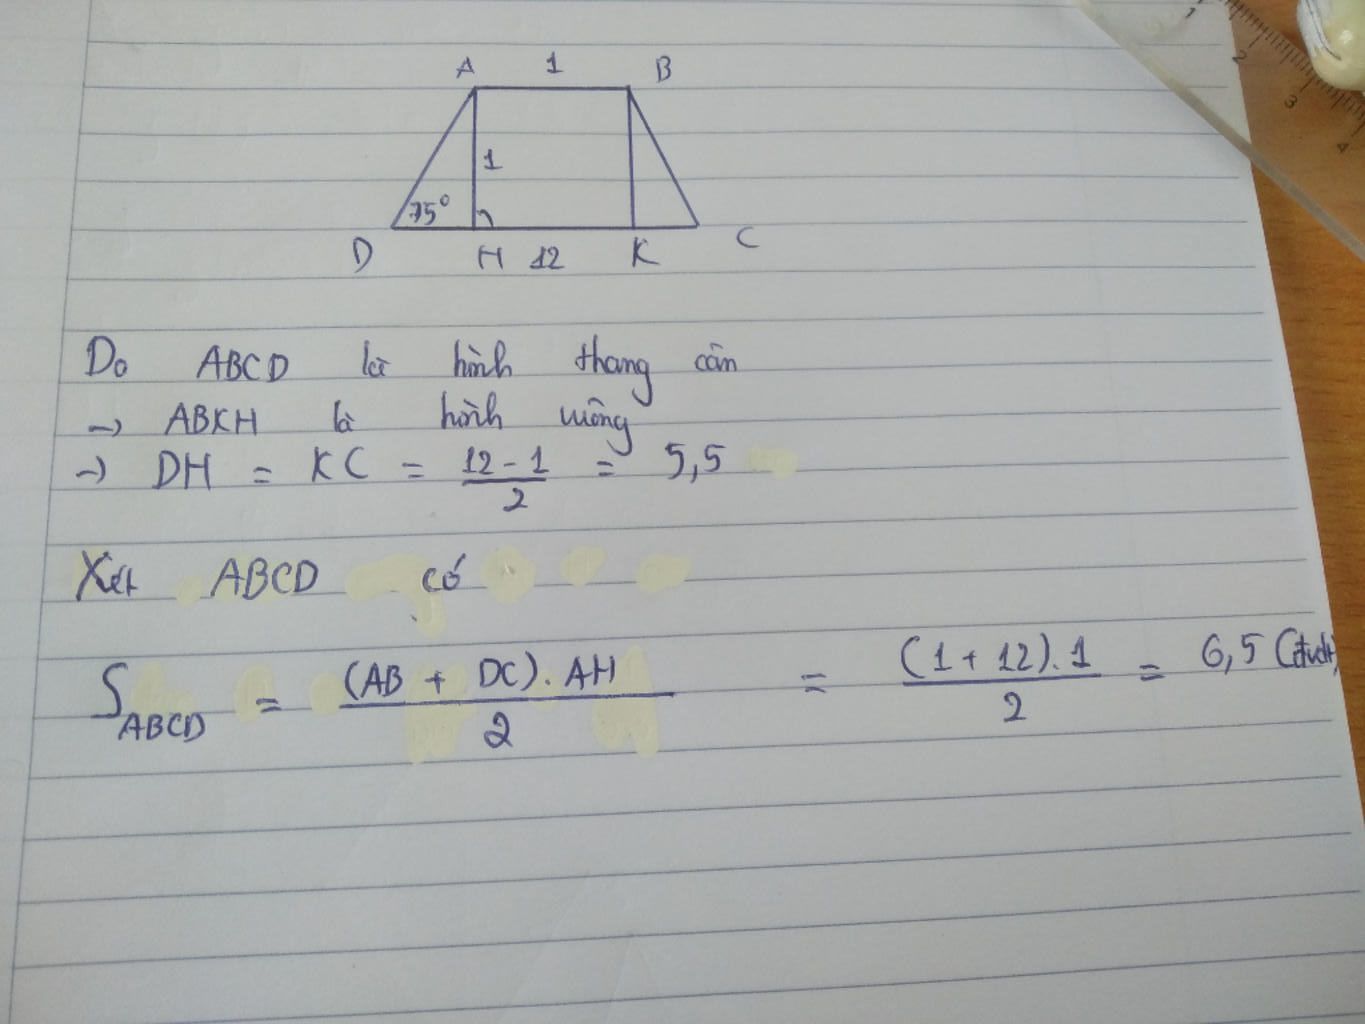 A 1 B
1
75°
D H 12 K C
Do ABCD là hình thang cân
→ ABKH là hình vuông
→ DH = KC = \frac{12 - 1}{2} = 5,5
Xét ABCD có
S_{ABCD} = \frac{(AB + DC) . AH}{2} = \frac{(1 + 12) . 1}{2} = 6,5 (đvdt)
1
2
3
4